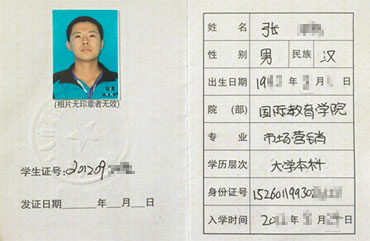 (相片无印章者无效)
学生证号: 201209
发证日期 年 月 日
姓 名 张
性 别 男 民族 汉
出生日期 19 年 月 日
院 (部) 国际教育学院
专 业 市场营销
学历层次 大学本科
身份证号 1526011993
入学时间 20 年 月 日